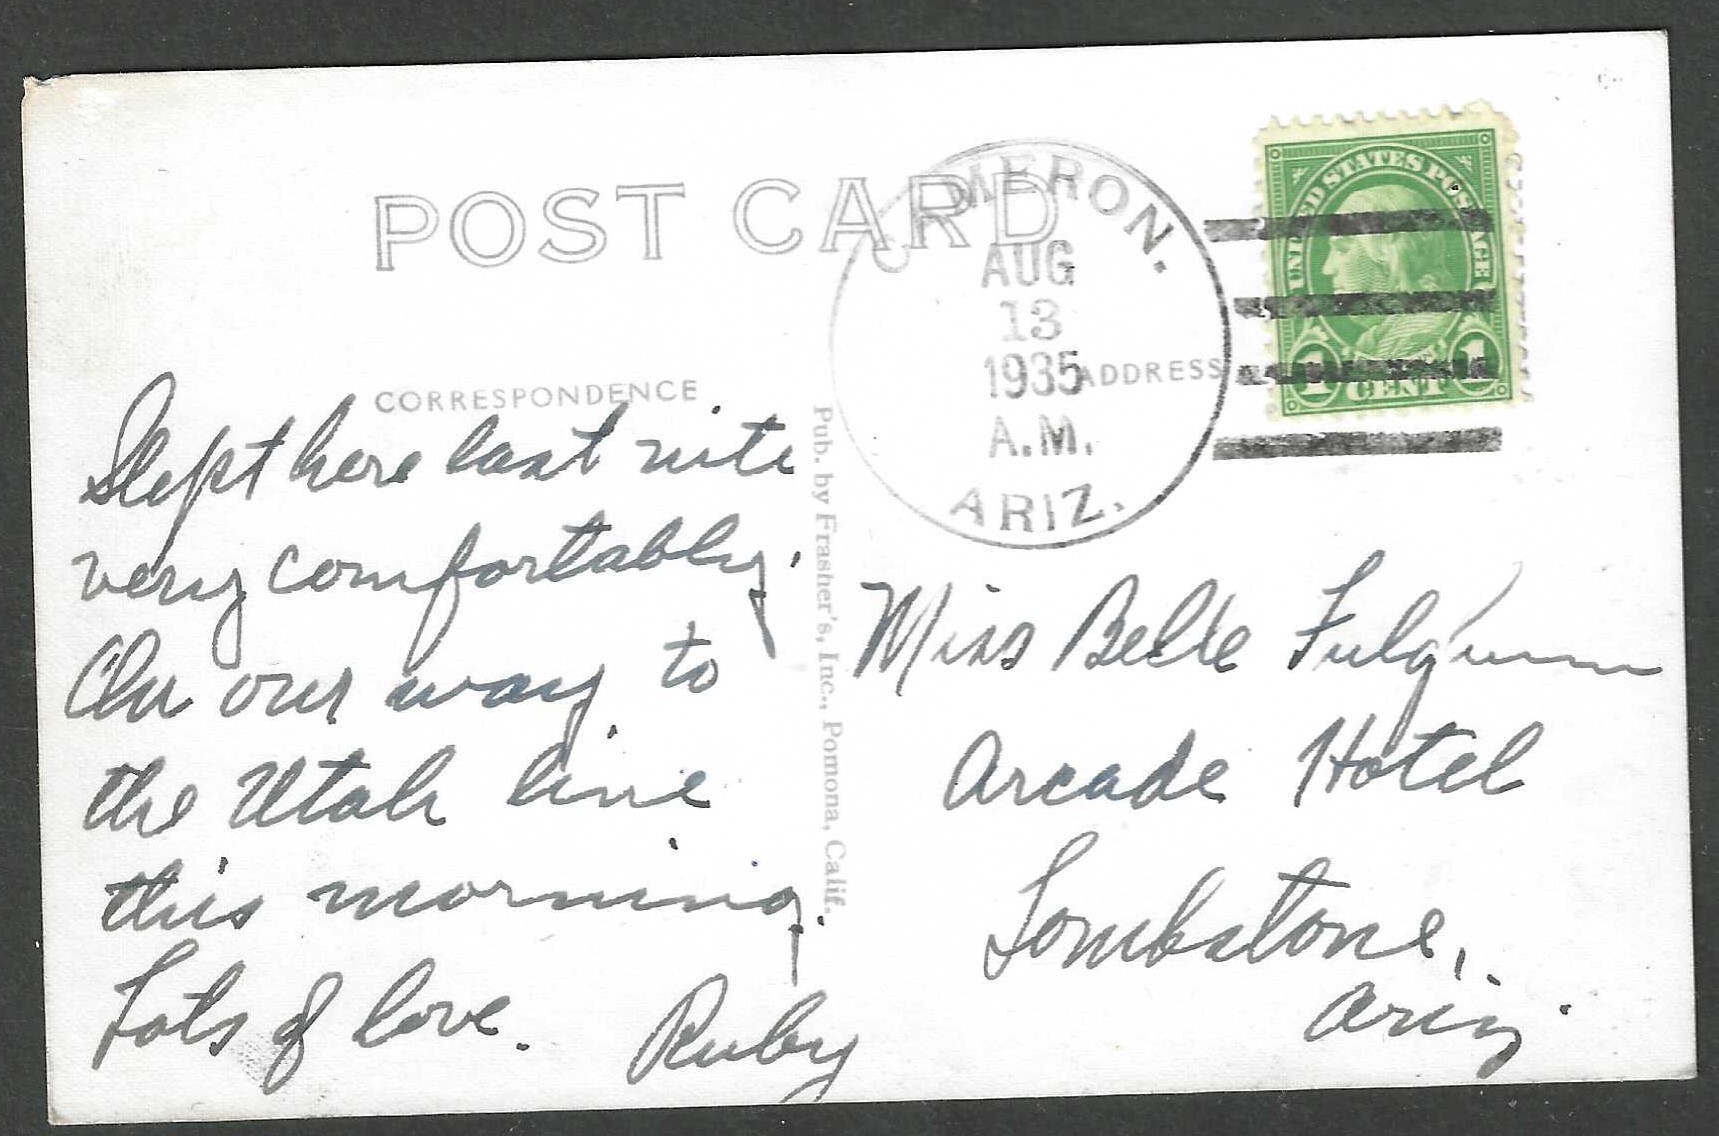 POST CARD
CAMERON.
AUG
13
1935
A.M.
ARIZ.
UNITED STATES POSTAGE
1 CENT 1
CORRESPONDENCE
ADDRESS
Slept here last nite
very comfortably.
On our way to
the Utah line
this morning.
Lots of love.
Ruby
Pub. by Frasher's, Inc., Pomona, Calif.
Miss Belle
Arcade Hotel
Tombstone,
Ariz.